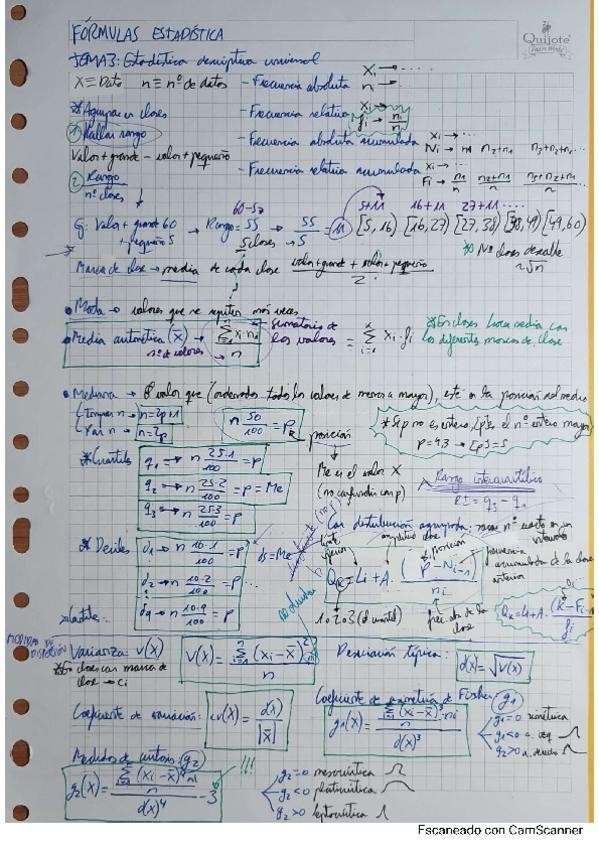 FÓRMULAS ESTADÍSTICA
Quijote
TEMA 3: Estadística descriptiva univarial
X ≡ Dato n ≡ nº de datos - Frecuencia absoluta Xi → ... n →
* Agrupar en clases - Frecuencia relativa Xi → fi → ni/n
① Hallar rango - Frecuencia absoluta acumulada Xi → ... Ni → n1 n1+n2 n3+n2+n1...
Valor + grande - valor + pequeño - Frecuencia relativa acumulada Xi → ... Fi → n1/n n2+n1/n n3+n2+n1/n
② Rango / nº clases
60-5 5+11 16+11 27+11 ....
Ej: Valor + grande 60 + pequeño 5 → Rango = 55 5 clases → 55/5 = 11 [5, 16) [16, 27) [27, 38) [38, 49) [49, 60)
* Nº clases detalle ~√n
Marca de clase → media de cada clase valor + grande + valor + pequeño / 2
• Moda → valores que se repiten más veces
• Media aritmética (X̄) → Σ xi·ni / n sumatorio de los valores = Σ xi·fi * En clases hacer media con los diferentes marcas de clase
nº de valores
• Mediana → El valor que (ordenados todos los valores de menor a mayor), esté en la posición del medio
Impar n → n=2p+1
Par n → n=2p
n 50/100 = p posición
* Si p no es entero, [p] es el nº entero mayor
p = 4,3 → [p] = 5
* Cuartiles q1 → n 25·1/100 = p
q2 → n 25·2/100 = p = Me
q3 → n 25·3/100 = p
Me es el valor X (no confundir con p)
Rango intercuartílico
RI = q3 - q1
* Deciles d1 → n 10·1/100 = p d5 = Me
d2 → n 10·2/100 = p ...
d9 → n 10·9/100 = p
Con distribución agrupada:
límite inferior amplitud clase posición frecuencia acumulada de la clase anterior
Qk = Li + A · (p - Ni-1) / ni
1 o 2 o 3 (el cuartil) frec. abs de la clase
Qk = Li + A · (k - Fi-1) / fi
MEDIDAS DE DISPERSIÓN
Varianza: V(X) V(X) = Σ (xi - x̄)² / n Desviación típica: d(X) = √V(X)
* En clases con marca de clase → ci
Coeficiente de variación: cv(X) = d(X) / |X̄|
Coeficiente de asimetría de Fisher: g1
g1(X) = Σ (xi - x̄)³ ni / n / d(X)³
g1=0 simétrica
g1<0 a. izq
g1>0 a. decha
Medidas de curtosis (g2) !!!
g2(X) = Σ (xi - x̄)⁴ ni / n / d(X)⁴ - 3
g2=0 mesocúrtica
g2<0 platicúrtica
g2>0 leptocúrtica
Escaneado con CamScanner